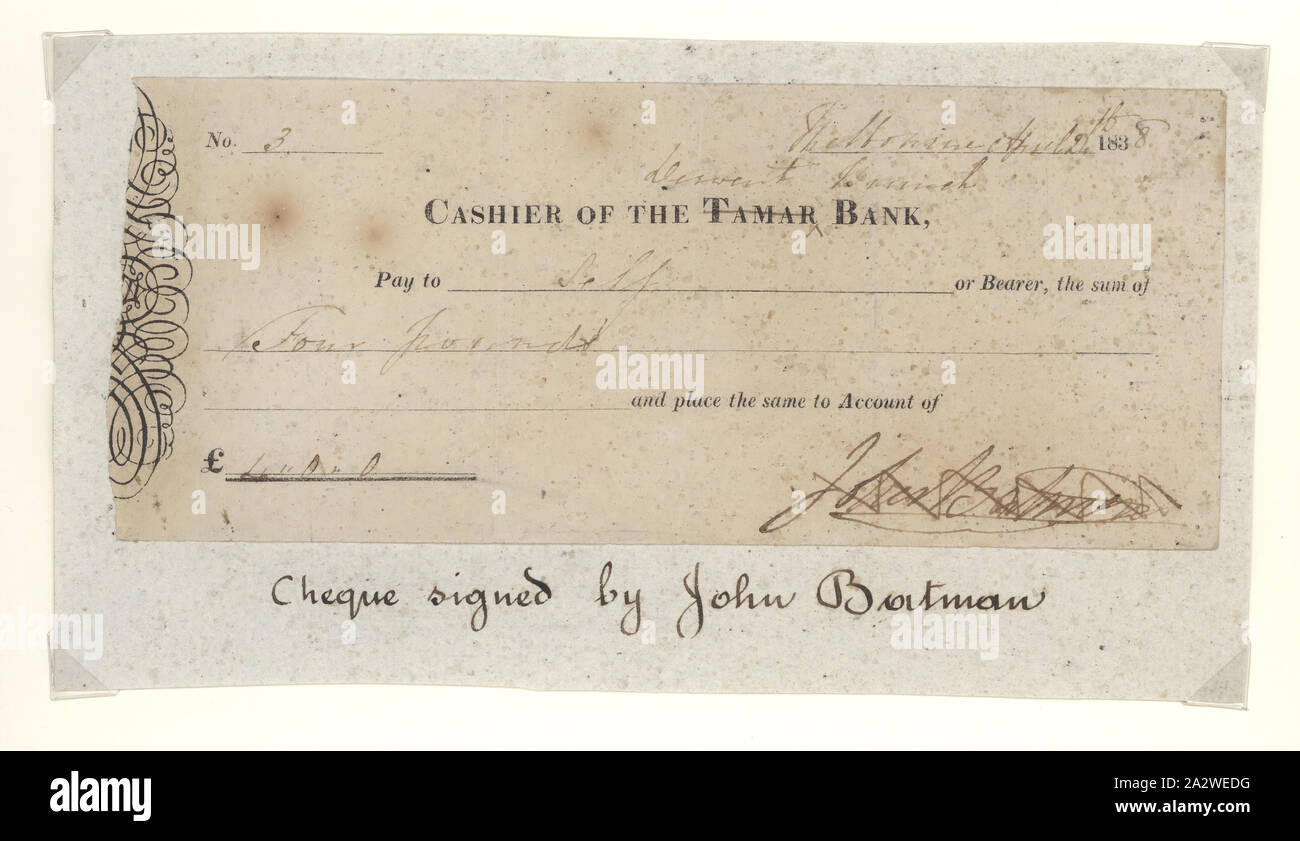 No. 3 Melbourne April 2th 1838
Derwent Branch
CASHIER OF THE TAMAR BANK,
Pay to Self or Bearer, the sum of
Four pounds
and place the same to Account of
£ 4 " 0 " 0
John Batman
Cheque signed by John Batman
alamy
Image ID: 2A2WEDG
www.alamy.com